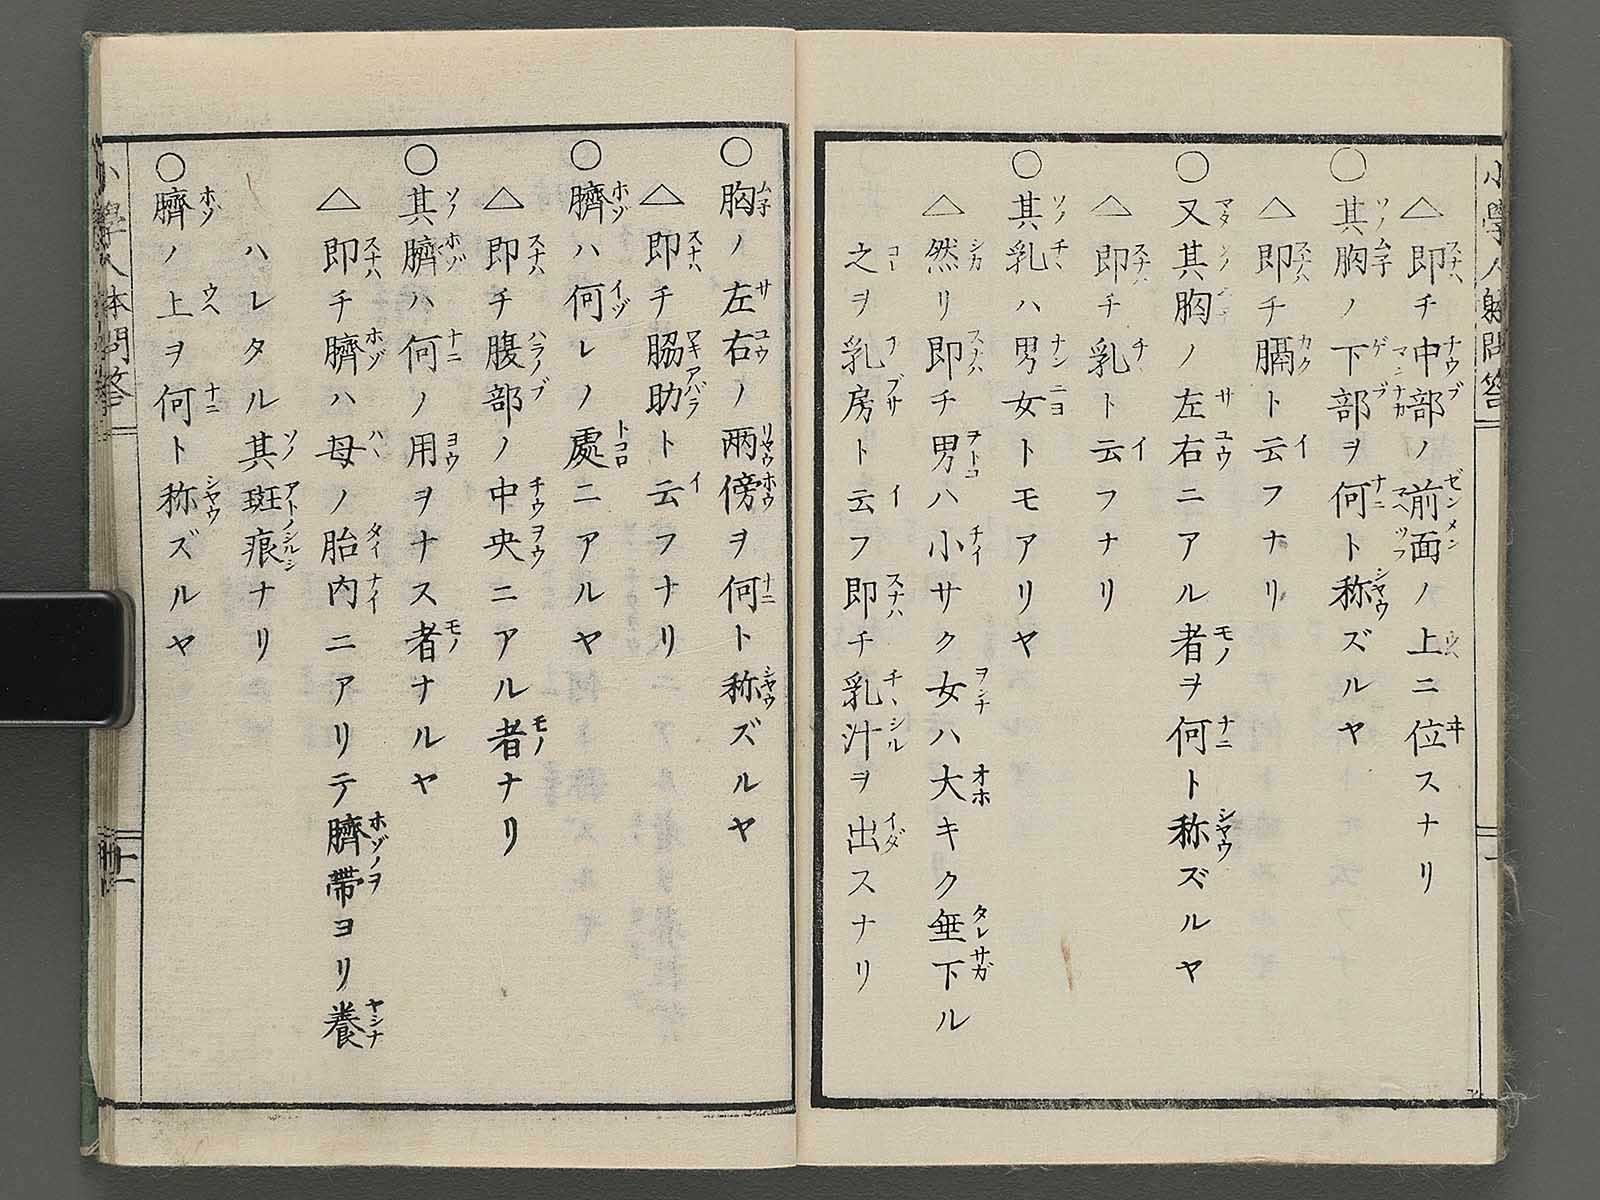 △即チ中部ノ前面ノ上ニ位スナリ
○其胸ノ下部ヲ何ト称ズルヤ
△即チ膈ト云フナリ
○又其胸ノ左右ニアル者ヲ何ト称ズルヤ
△即チ乳ト云フナリ
○其乳ハ男女トモアリヤ
△然リ即チ男ハ小サク女ハ大キク垂下ル
之ヲ乳房ト云フ即チ乳汁ヲ出スナリ
○胸ノ左右ノ两傍ヲ何ト称ズルヤ
△即チ脇助ト云フナリ
○臍ハ何レノ處ニアルヤ
△即チ腹部ノ中央ニアル者ナリ
○其臍ハ何ノ用ヲナス者ナルヤ
△即チ臍ハ母ノ胎内ニアリテ臍帶ヨリ養
ハレタル其斑痕ナリ
○臍ノ上ヲ何ト称ズルヤ